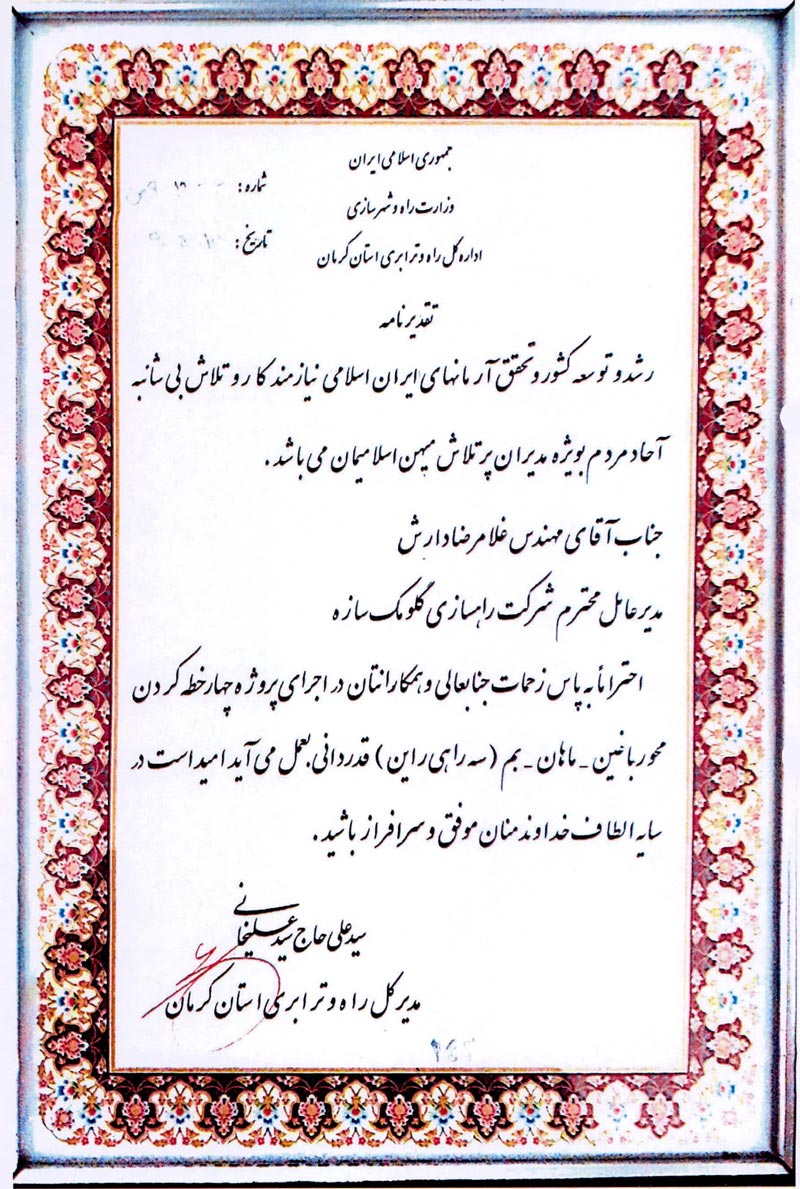 جمهوری اسلامی ایران
وزارت راه و شهرسازی
اداره کل راه و ترابری استان کرمان
شماره :
تاریخ :
تقدیرنامه
رشد و توسعه کشور و تحقق آرمانهای ایران اسلامی نیازمند کار و تلاش بی شائبه
آحاد مردم بویژه مدیران پرتلاش میهن اسلامیمان می باشد .
جناب آقای مهندس غلامرضا دارش
مدیرعامل محترم شرکت راهسازی گلومک سازه
احتراماً به پاس زحمات جنابعالی و همکارانتان در اجرای پروژه چهارخطه کردن
محور باغین - ماهان - بم (سه راهی راین) قدردانی بعمل می آید امید است در
سایه الطاف خداوند منان موفق و سرافراز باشید .
سید علی حاج سید علیخانی
مدیرکل راه و ترابری استان کرمان